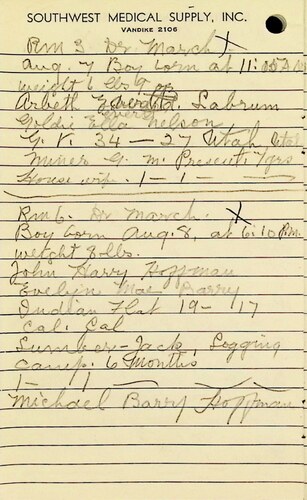 SOUTHWEST MEDICAL SUPPLY, INC.
VANDIKE 2106
Rm 3 Dr March. X
Aug. 7 Boy born at 11:05 A.M.
weight 6 lbs 9 oz
Arbeth Labrum
Goldie Ella Nelson,
G. V. 34 — 27 Utah, Utah
Miner G. M. Present 7 yrs
House wife. 1 — 1 —
Rm 6. Dr March. X
Boy born Aug. 8, at 6:10 P.M.
weight 8 lbs.
John Harry Hoffman
Evelyn Mae Barry
Indian Flat 19 - 17
Cal. Cal
Lumber-Jack Logging
Camp. 6 Months
1 - 1
Michael Barry Hoffman.